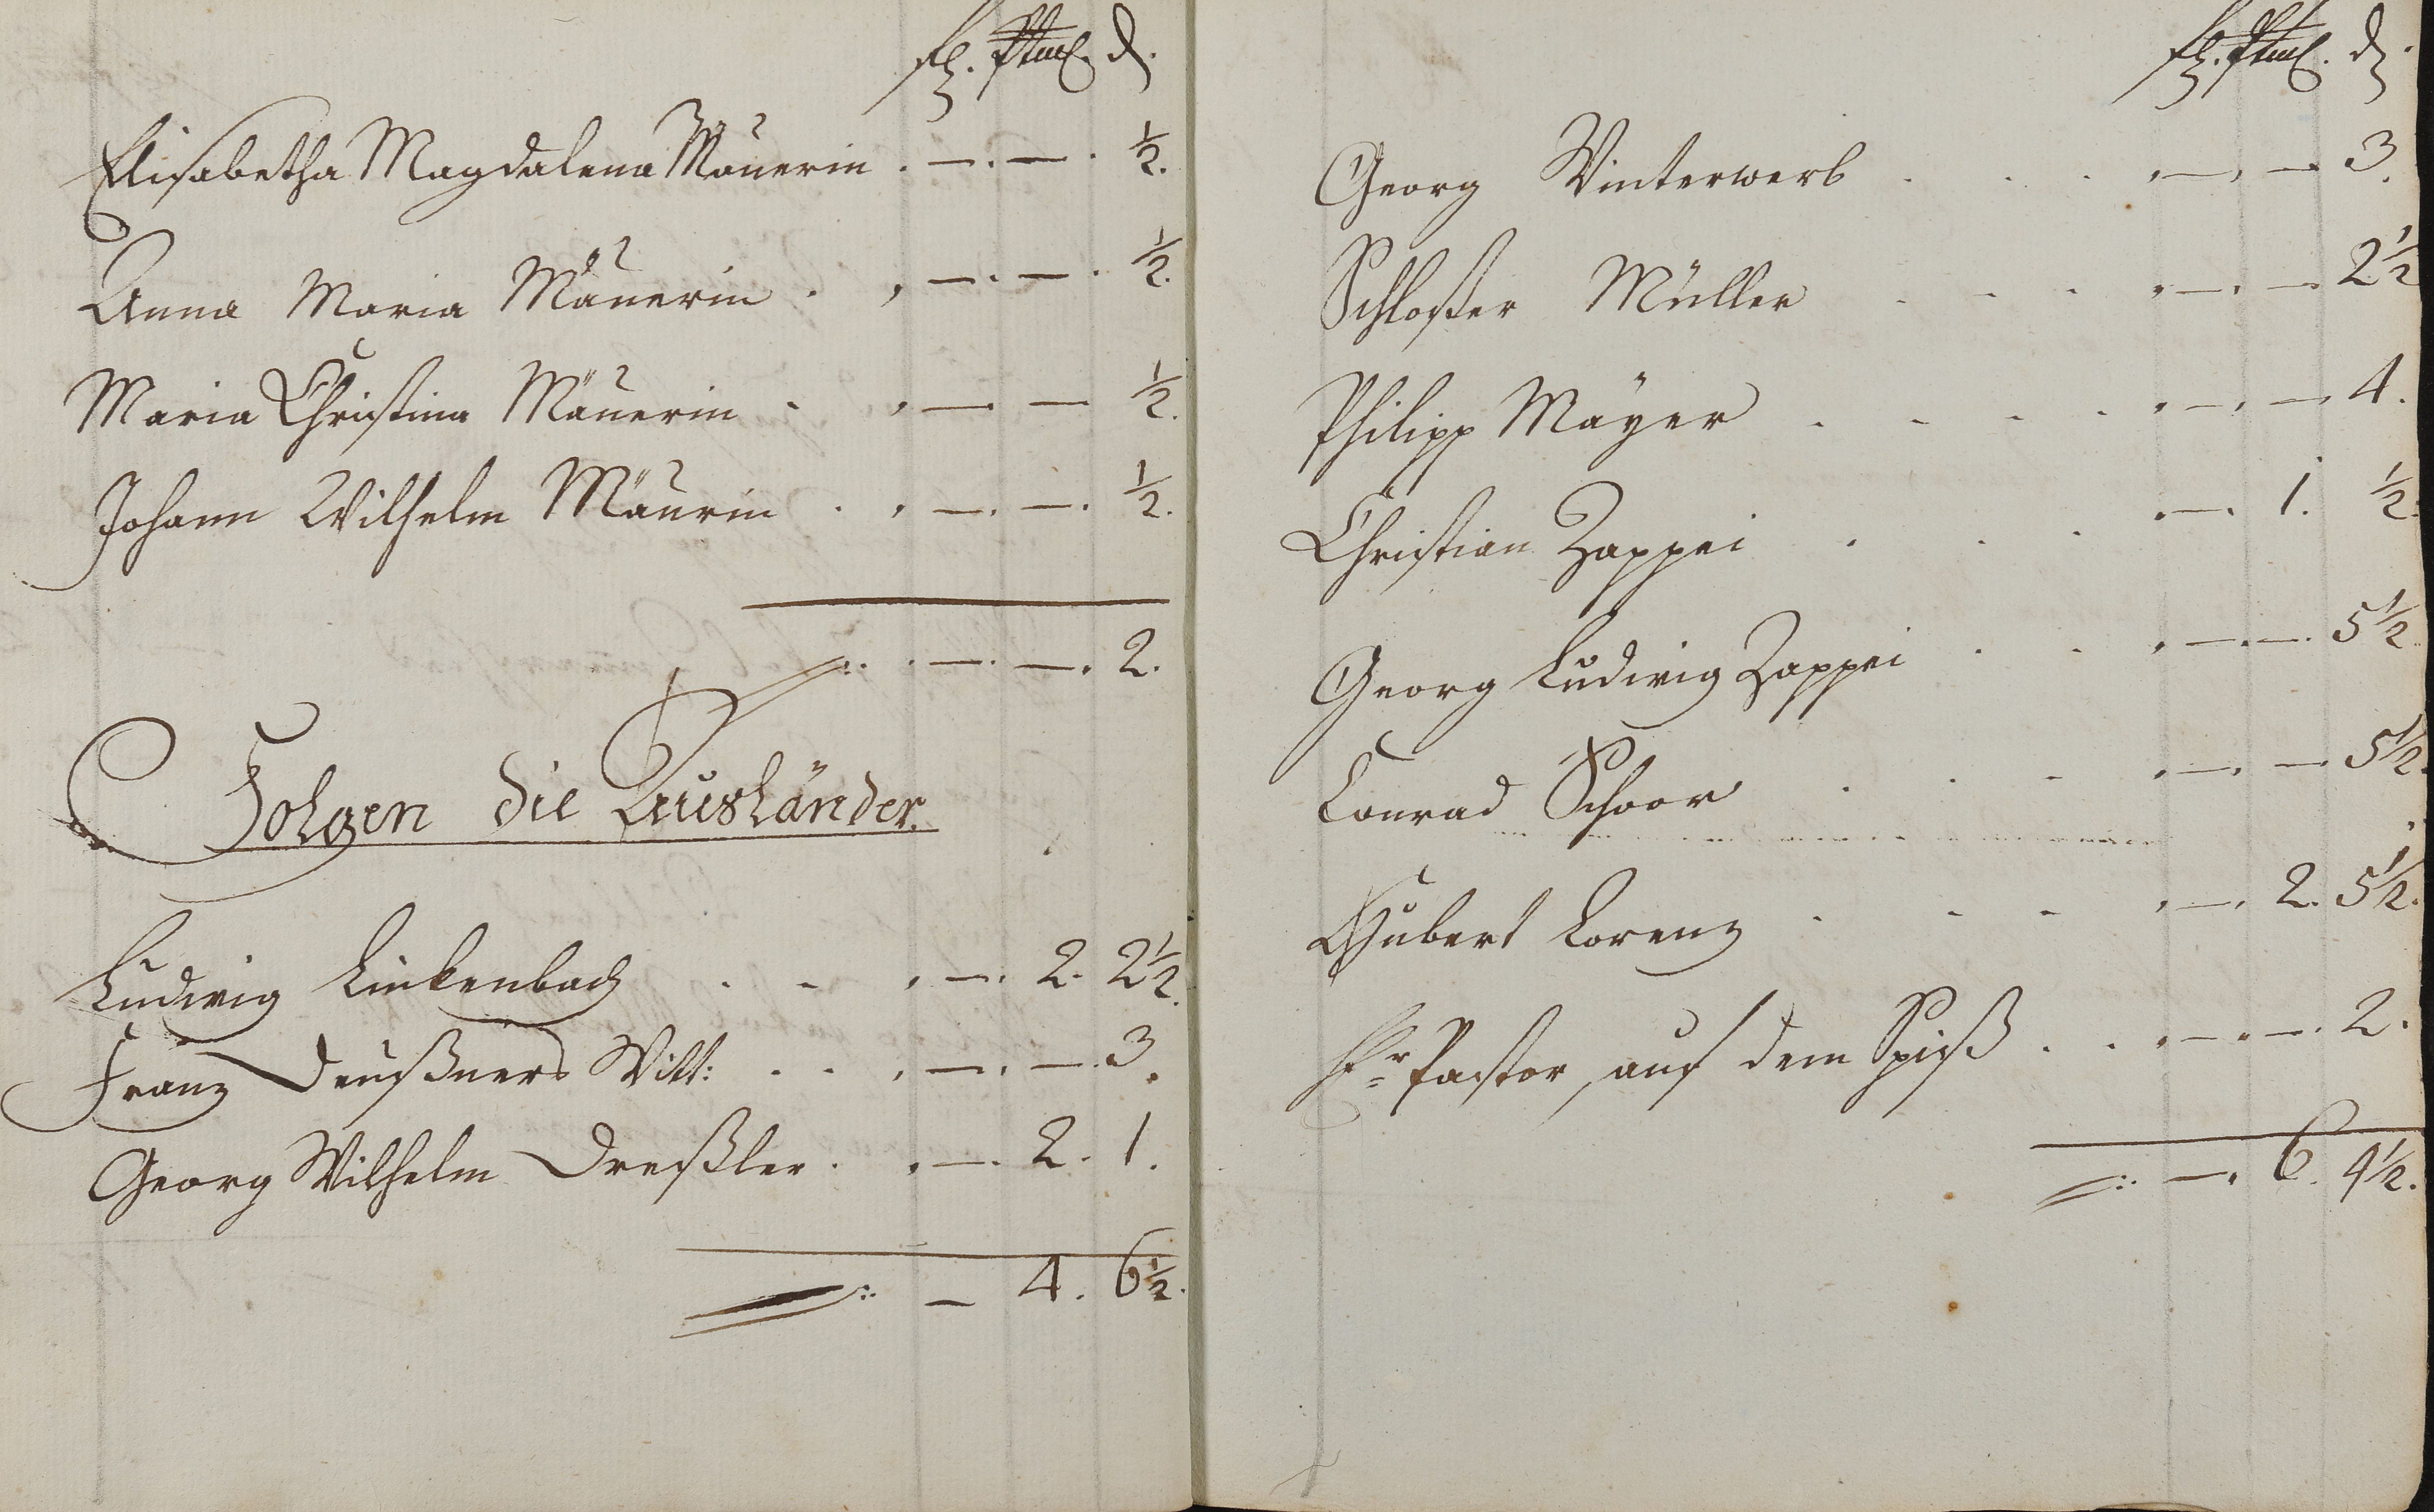 fl. Stmr. d.
Elisabetha Magdalena Mäuerin . — . — . ½.
Anna Maria Mäuerin . , — . — . ½.
Maria Christina Mäuerin . , — . — ½.
Johann Wilhelm Mäurin . , — . — . ½.
. — . — . 2.
Folgen die Ausländer.
Ludwig Linkenbach . . , — . 2. 2½.
Franz Deußners Witt: . . , — . — . 3.
Georg Wilhelm Dreßler . , — . 2. 1.
— 4. 6½.
fl. Stmr. d.
Georg Winterwerb . . . , — , — 3.
Schloßer Müller . . . , — . — 2½
Philipp Mäyer . . . . , — , — 4.
Christian Zappei . . . , — . 1. ½.
Georg Ludwig Zappei . . , — . — . 5½
Conrad Schoor . . . , — , — 5½.
Hubert Lorenz . . . , — , 2. 5½.
Hr. Pastor auf dem Spieß . . , — . — . 2.
— . 6. 4½.